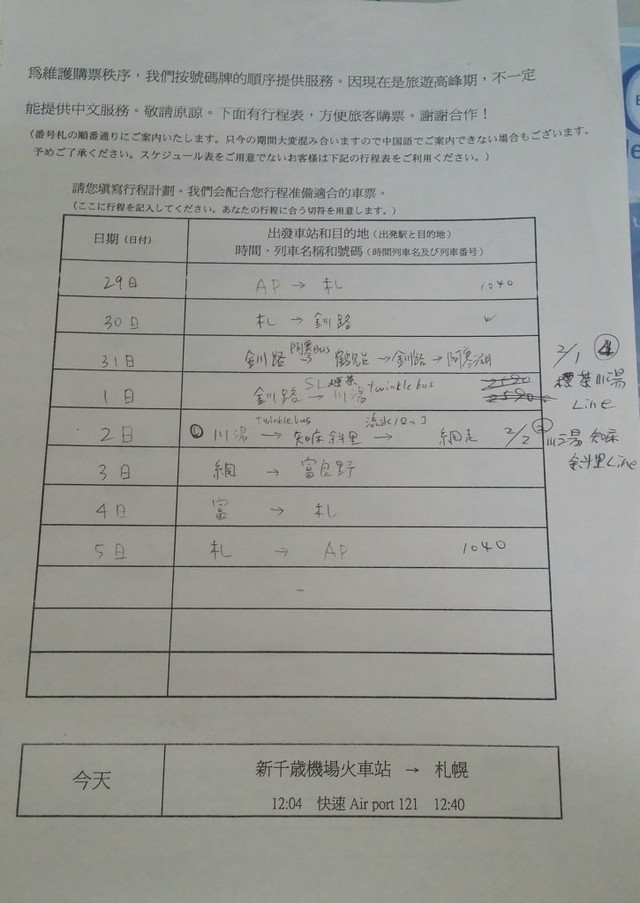 為維護購票秩序，我們按號碼牌的順序提供服務。因現在是旅遊高峰期，不一定
能提供中文服務。敬請原諒。下面有行程表，方便旅客購票。謝謝合作！
（番号札の順番通りにご案内いたします。只今の期間大変混み合いますので中国語でご案内できない場合もございます。
予めご了承ください。スケジュール表をご用意でないお客様は下記の行程表をご利用ください。）
請您填寫行程計劃。我們会配合您行程准備適合的車票。
（ここに行程を記入してください。あなたの行程に合う切符を用意します。）
日期（日付） 出發車站和目的地（出発駅と目的地）
時間、列車名稱和號碼（時間列車名及び列車番号）
29日 AP → 札 1040
30日 札 → 釧路 ✓
阿寒Bus
31日 釧路 → → 釧路 → 阿寒湖 2/1 ④
SL 標茶 twinklebus 標茶 川湯
1日 釧路 → 川湯 Line
twinklebus 流氷ノロッコ
2日 ① 川湯 → 知床斜里 → 網走 2/2 川湯 知床
斜里Line
3日 網 → 富良野
4日 富 → 札
5日 札 → AP 1040
今天 新千歳機場火車站 → 札幌
12:04 快速 Air port 121 12:40